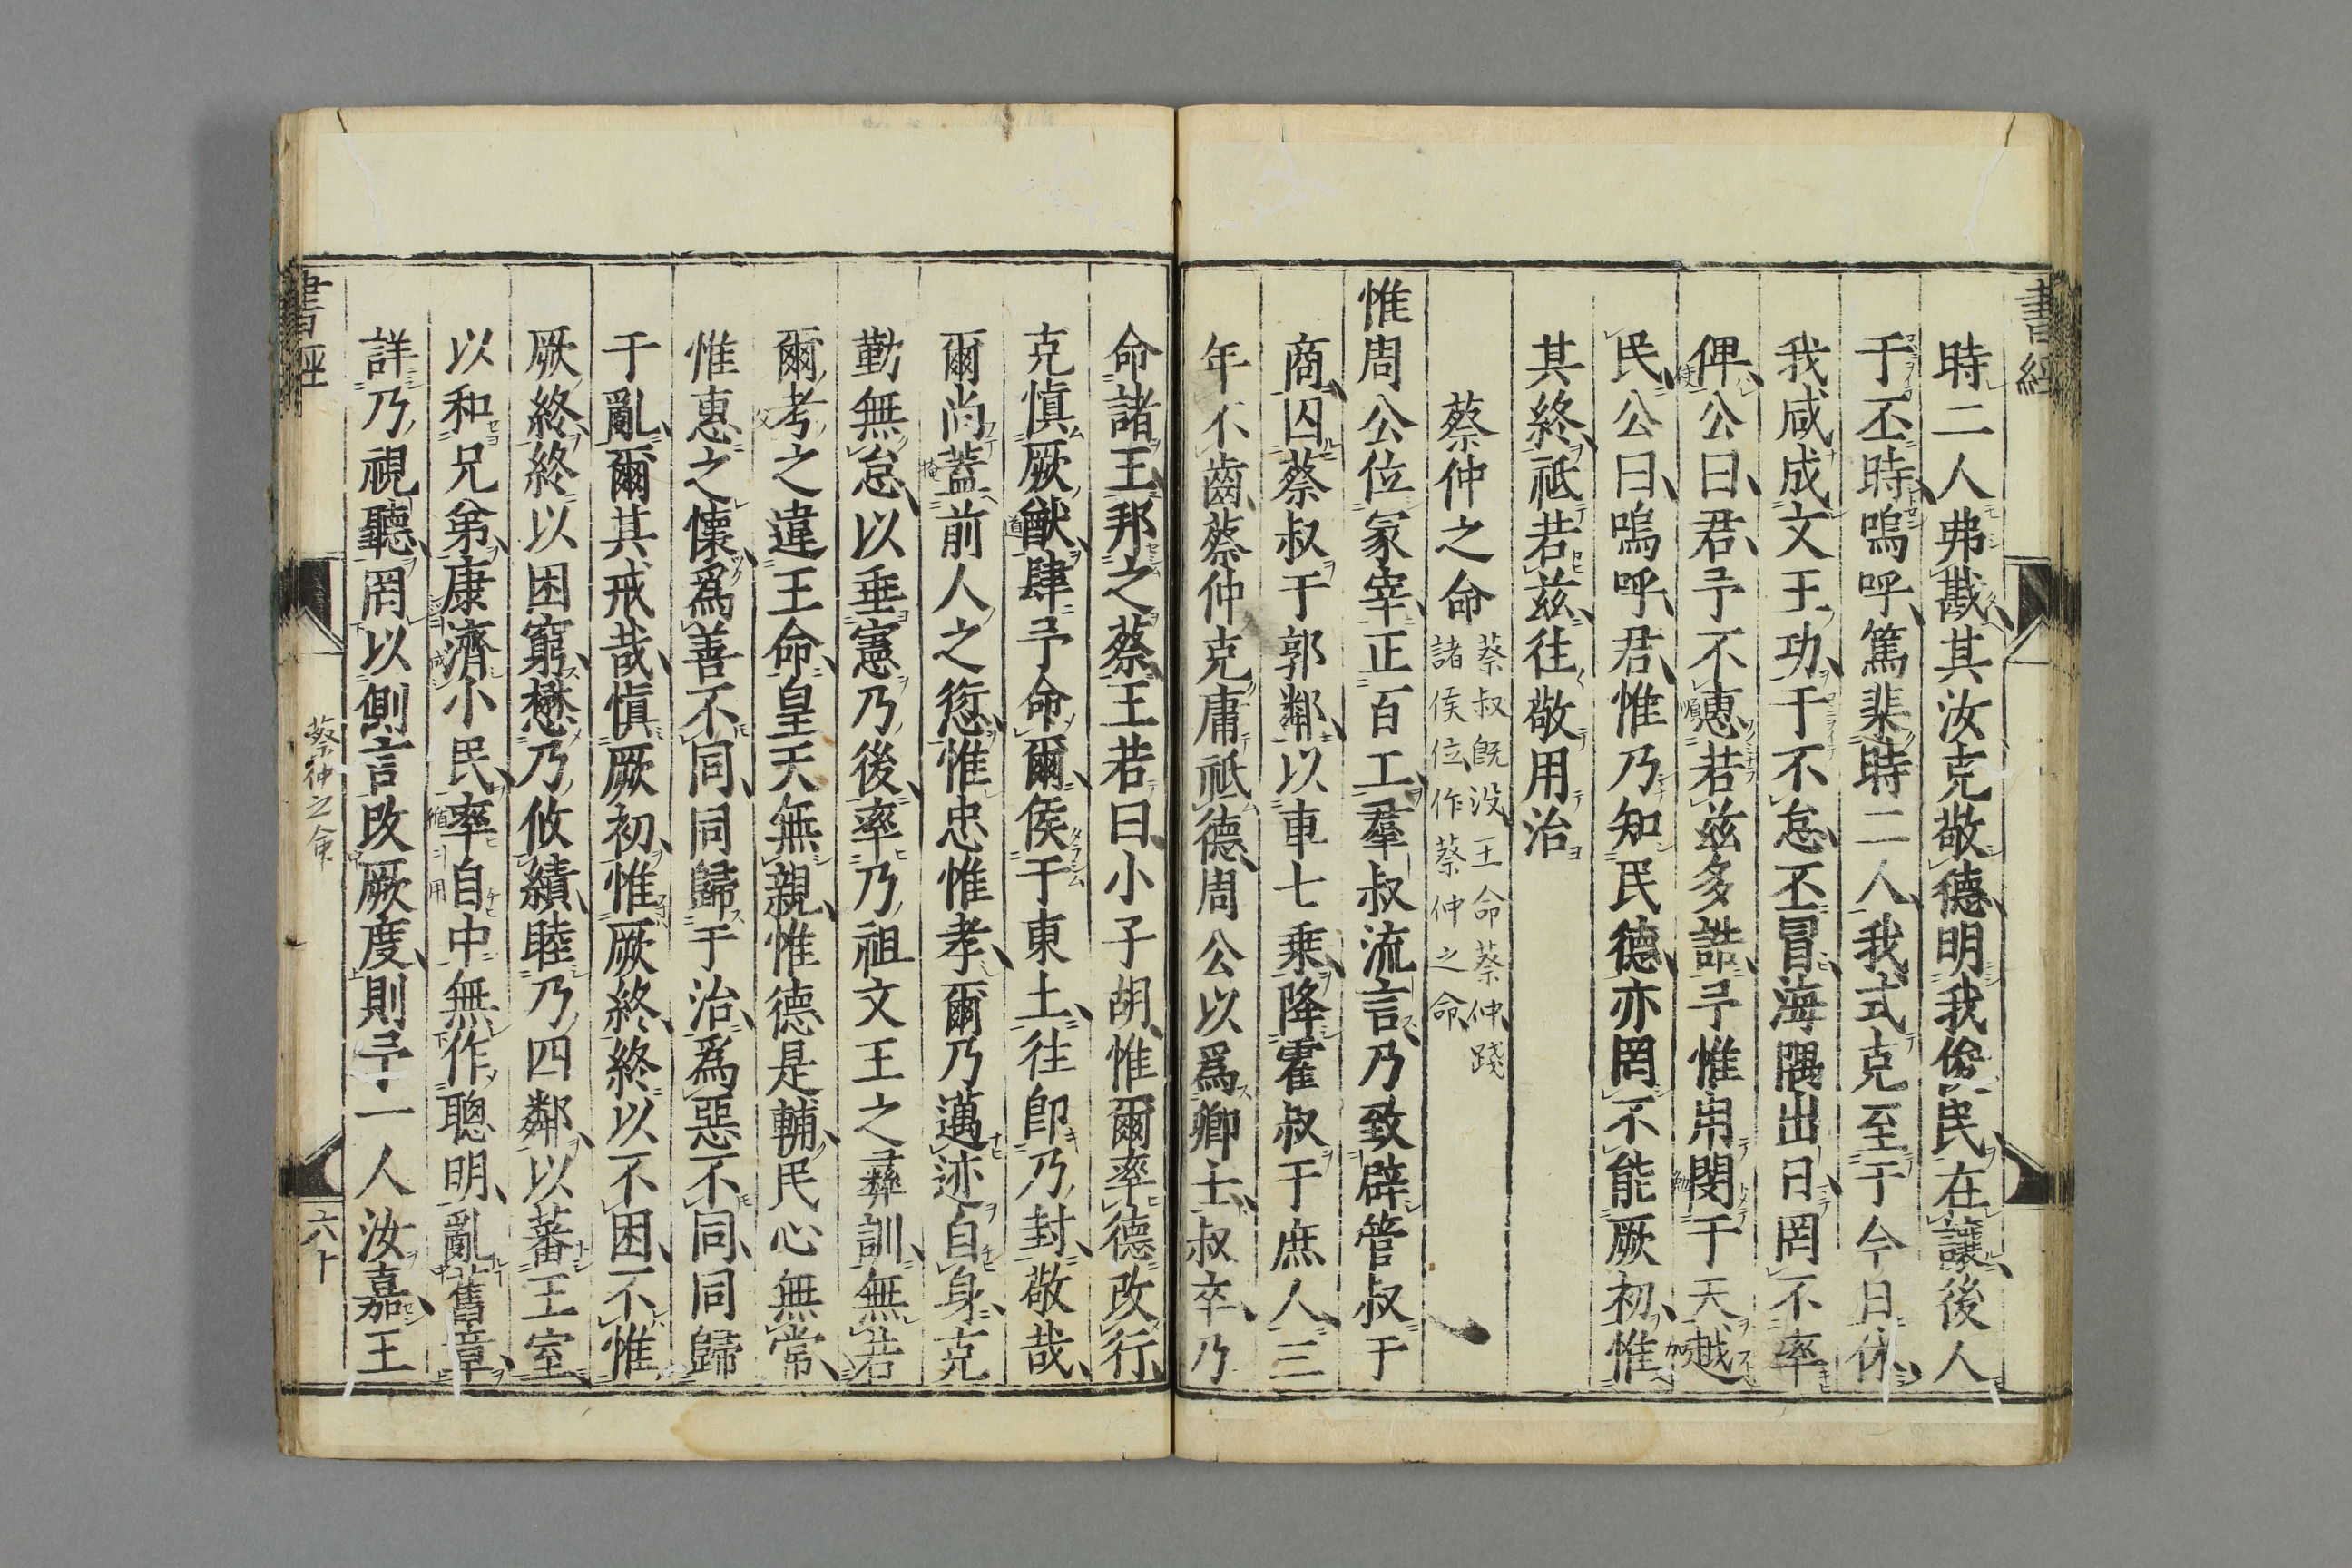 書經
時二人弗戡其汝克敬德明我俊民在讓後人
于丕時嗚呼篤棐時二人我式克至于今日休
我咸成文王功于不怠丕冒海隅出日罔不率
俾公曰君予不惠若茲多誥予惟用閔于天越
民公曰嗚呼君惟乃知民德亦罔不能厥初惟
其終祗若茲往敬用治
蔡仲之命
蔡叔既没王命蔡仲踐
諸侯位作蔡仲之命
惟周公位冢宰正百工羣叔流言乃致辟管叔于
商囚蔡叔于郭鄰以車七乗降霍叔于庶人三
年不齒蔡仲克庸祗德周公以爲卿士叔卒乃
命諸王邦之蔡王若曰小子胡惟爾率德改行
克愼厥猷肆予命爾侯于東土往卽乃封敬哉
爾尚蓋前人之愆惟忠惟孝爾乃邁迹自身克
勤無怠以垂憲乃後率乃祖文王之彝訓無若
爾考之違王命皇天無親惟德是輔民心無常
惟惠之懷爲善不同同歸于治爲惡不同同歸
于亂爾其戒哉愼厥初惟厥終終以不困不惟
厥終終以困窮懋乃攸績睦乃四鄰以蕃王室
以和兄弟康濟小民率自中無作聰明亂舊章
詳乃視聽罔以側言改厥度則予一人汝嘉王
書經
蔡仲之命
六十